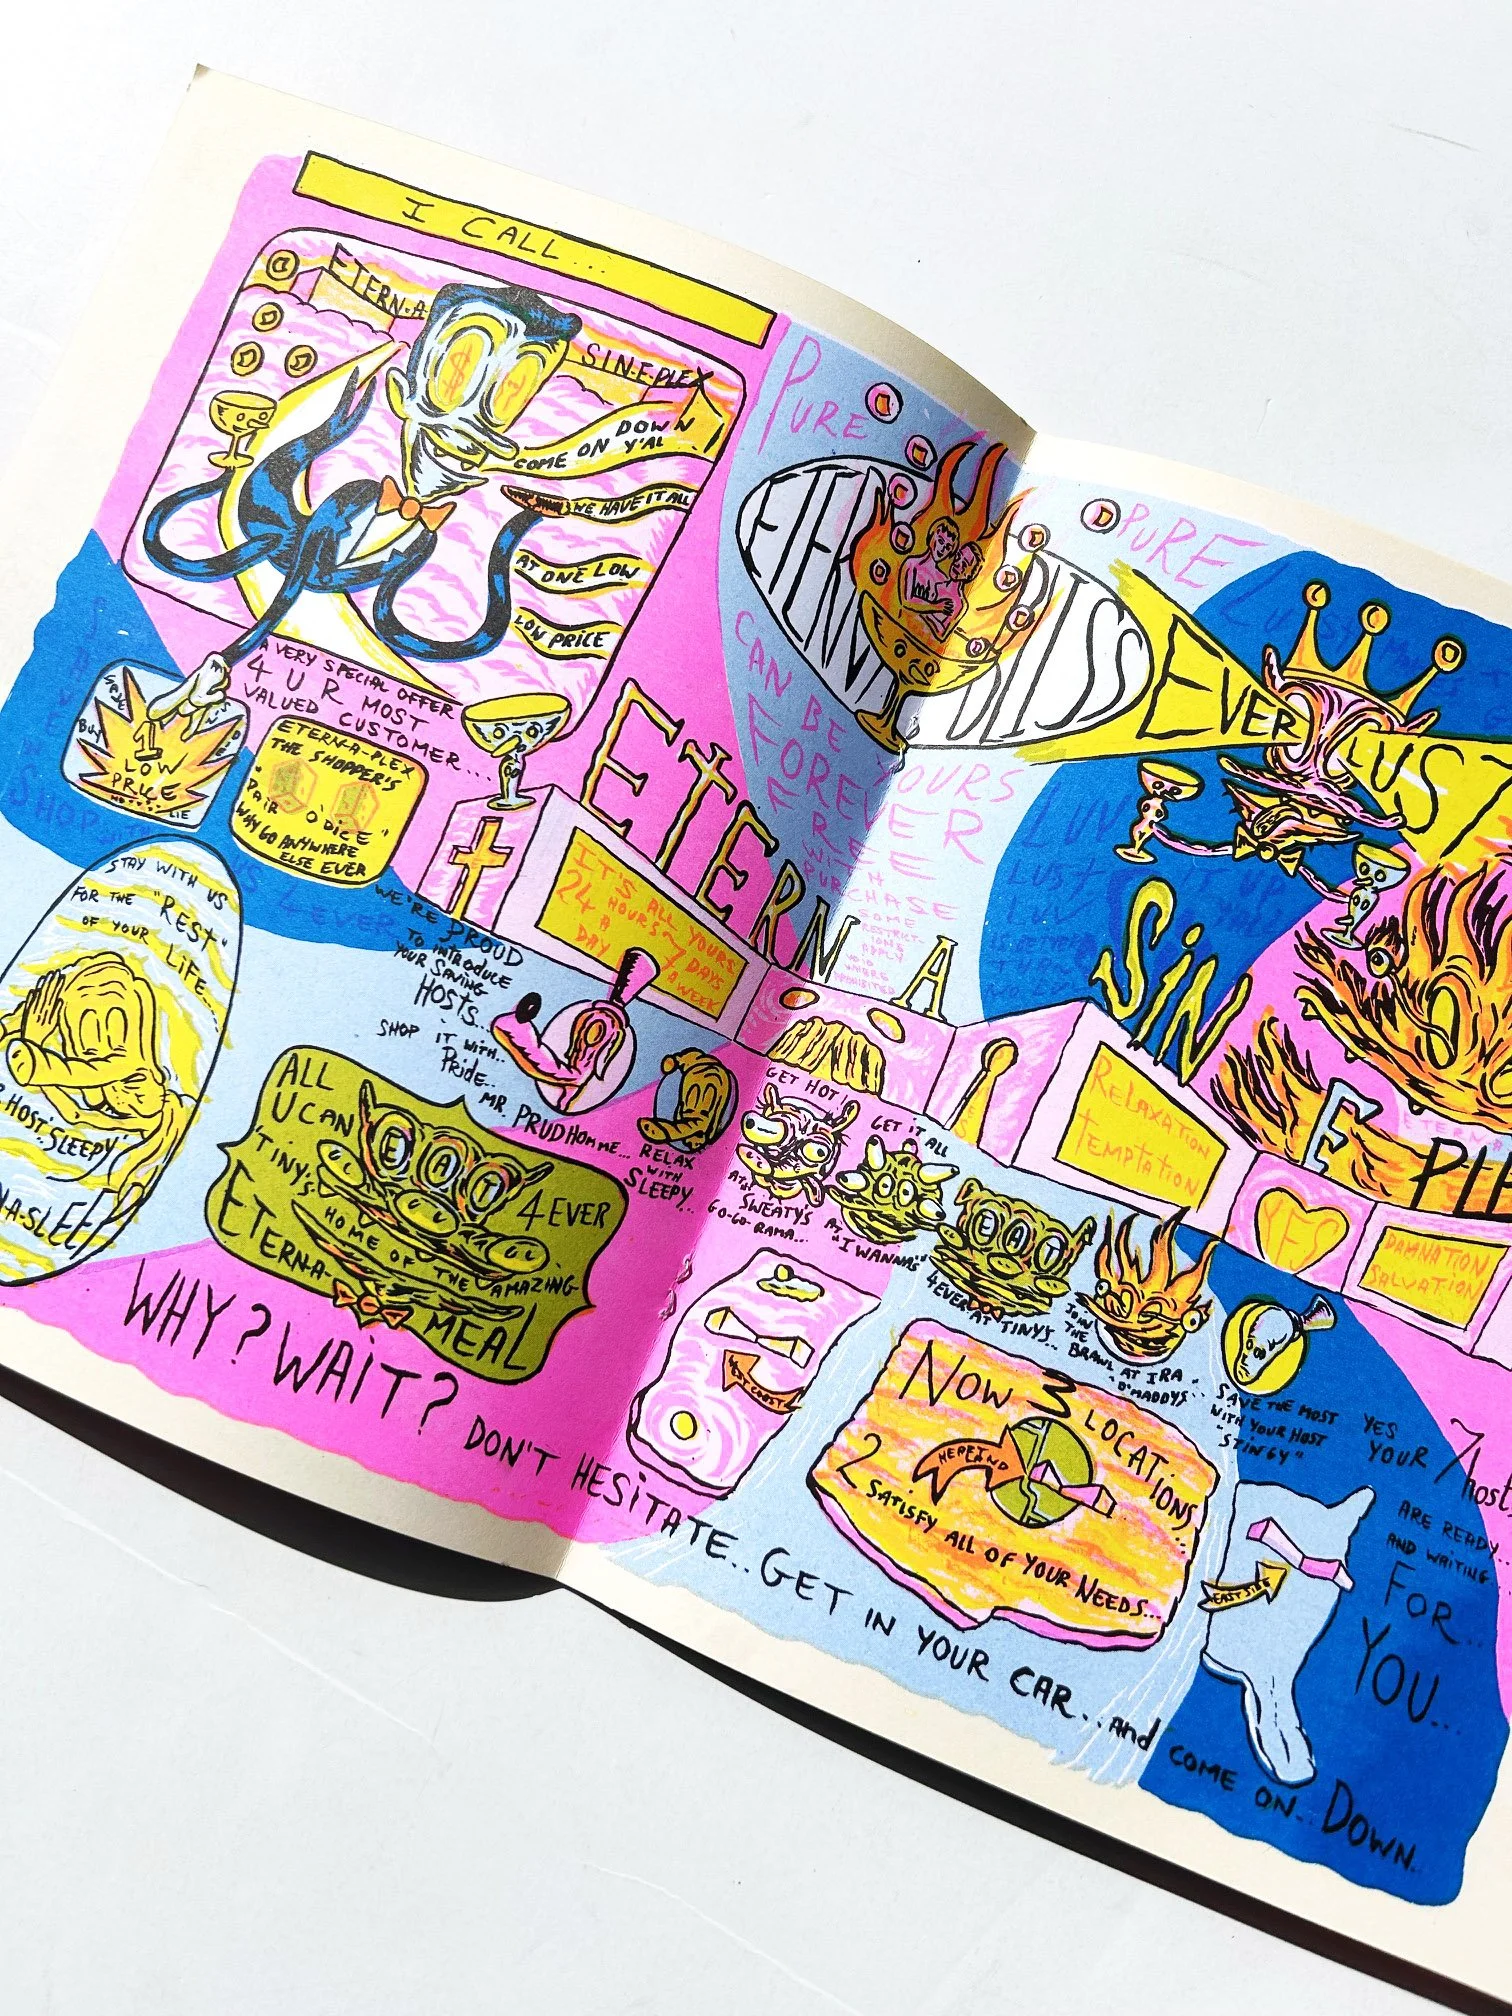 I CALL...
ETERN-A-
SIN-E-PLEX
COME ON DOWN Y'AL!
WE HAVE IT ALL
AT ONE LOW
LOW PRICE
A VERY SPECIAL OFFER
4 U R MOST
VALUED CUSTOMER...
BUY
1
LOW
PRICE
LIE
ETERN-A-PLEX
THE SHOPPER'S
"PAIR O DICE"
WHY GO ANYWHERE
ELSE EVER
SAVE
SHOP WITH
4EVER
STAY WITH US
FOR THE "REST"
OF YOUR LIFE...
HOST "SLEEPY"
N-A-SLEEP
WE'RE PROUD
TO INTRODUCE
YOUR SAVING
HOSTS...
SHOP IT WITH..
PRIDE..
MR. PRUDHOMME...
RELAX
WITH
SLEEPY...
ALL
U CAN
EAT
4EVER
"TINY'S"
HOME OF THE AMAZING
ETERN-A-
MEAL
PURE
ETERNAL BLISS
CAN BE
YOURS
FOREVER
FREE
WITH
PURCHASE
SOME
RESTRICT-
IONS
APPLY
VOID
WHERE
PROHIBITED
PURE
LUST
EVER LUST
LUV
LUST
LUV
IS BETTER
THAN
NO LUV
ETERN-A
SIN
E
PLE
IT'S ALL YOURS
24 HOURS
A DAY
7 DAYS
A WEEK
RELAXATION
TEMPTATION
YES
DAMNATION
SALVATION
GET HOT!
AT SWEATY'S
GO-GO-RAMA...
GET IT ALL
AT "I WANNAS"
EAT
4EVER
AT TINYS..
JOIN
THE
BRAWL AT IRA
"D"MADDYS"...
SAVE THE MOST
WITH YOUR HOST
"STINGY"
YES
YOUR 7 host
ARE READY..
AND WAITING
FOR..
YOU...
WEST COAST
NOW 3 LOCATIONS
HEARTLAND
2 SATISFY ALL OF YOUR NEEDS...
EAST SIDE
WHY? WAIT? DON'T HESITATE.. GET IN YOUR CAR.. and COME ON.. DOWN..